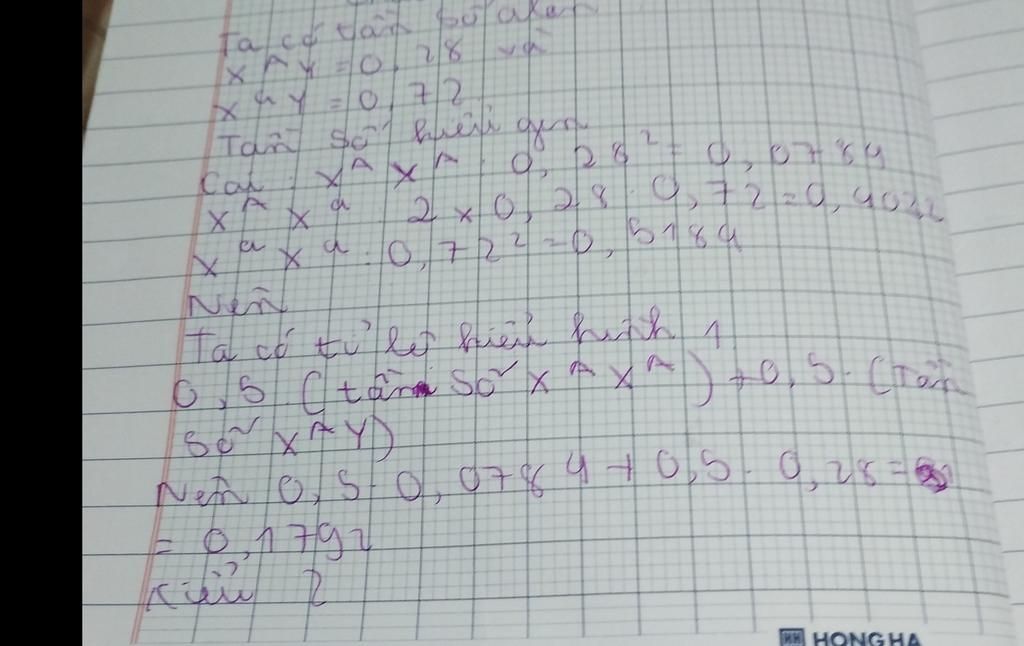 Ta có tần số alen
X^A Y = 0,28 và
X^a Y = 0,72
Tần số kiểu gen
X^A X^A : 0,28² = 0,0784
X^A X^a 2 x 0,28 . 0,72 = 0,4032
X^a X^a : 0,72² = 0,5184
Nên
Ta có tỉ lệ kiểu hình 1
0,5 (tần số X^A X^A) + 0,5 . (Tần
số X^A Y)
Nên 0,5 . 0,0784 + 0,5 . 0,28 =
= 0,1792
Kiểu 2
HH HONGHA